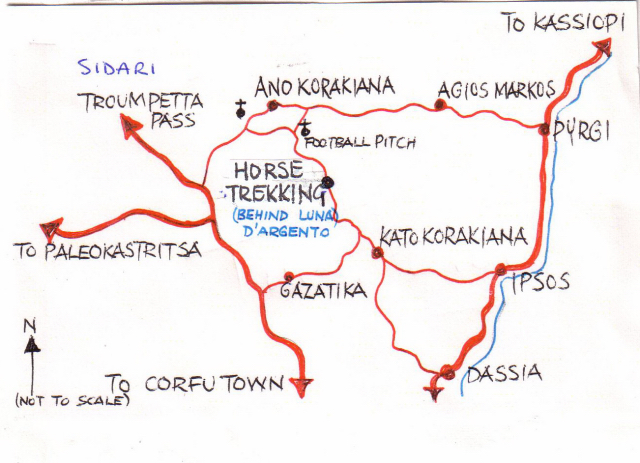 TO KASSIOPI
SIDARI
TROUMPETTA
PASS
ANO KORAKIANA
AGIOS MARKOS
PYRGI
FOOTBALL PITCH
HORSE
TREKKING
(BEHIND LUNA
D'ARGENTO
TO PALEOKASTRITSA
KATO KORAKIANA
GAZATIKA
IPSOS
N
(NOT TO SCALE)
TO CORFU TOWN
DASSIA